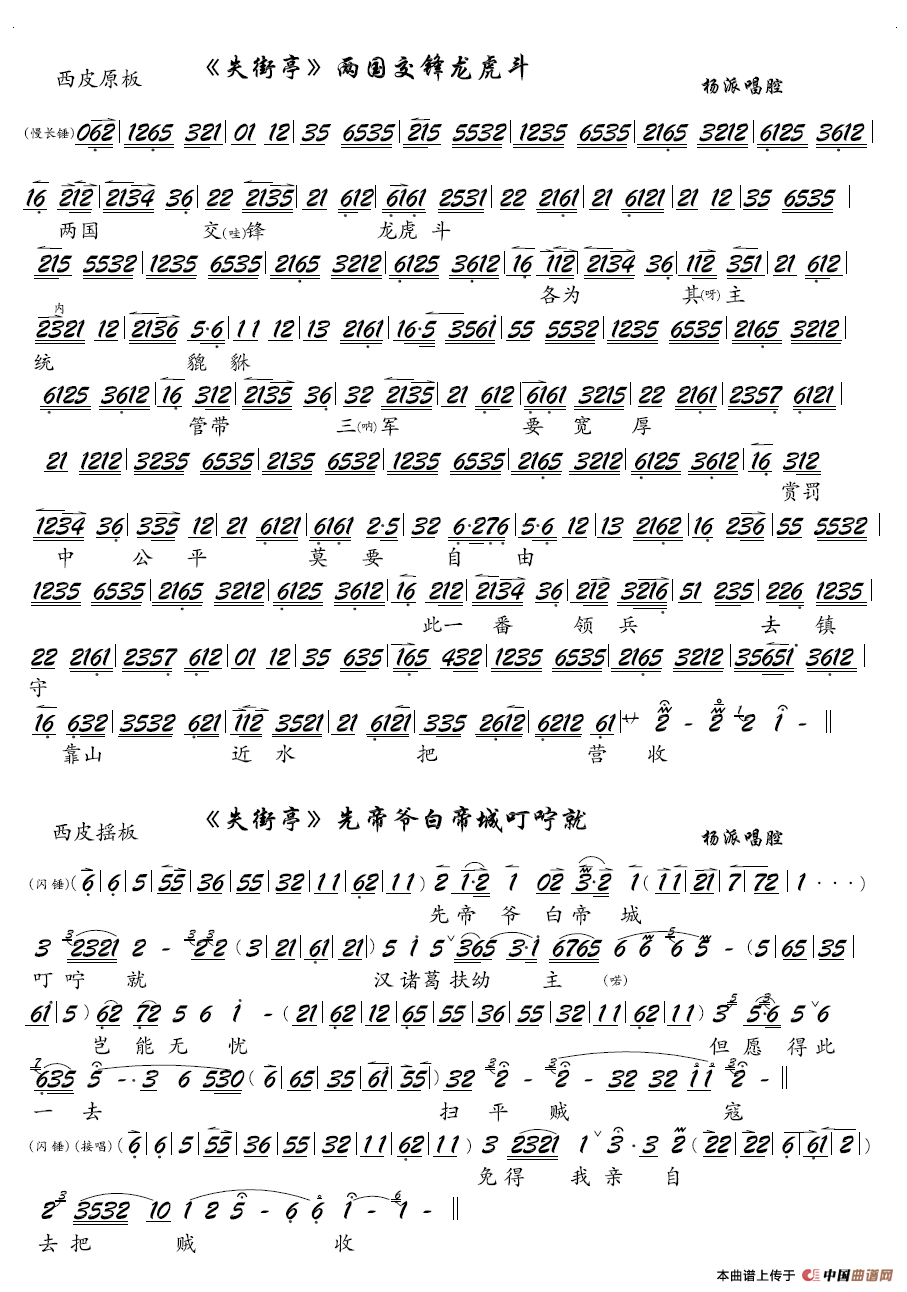 西皮原板 《失街亭》两国交锋龙虎斗 杨派唱腔
(慢长锤) 062|1265 321|01 12|35 6535|215 5532|1235 6535|2165 3212|6125 3612|
16 212|2134 36|22 2135|21 612|6161 2531|22 2161|21 6121|21 12|35 6535|
两国 交(哇)锋 龙虎 斗
215 5532|1235 6535|2165 3212|6125 3612|16 112|2134 36|112 351|21 612|
各为 其(呀)主
内
2321 12|2136 5·6|11 12|13 2161|16·5 3561|55 5532|1235 6535|2165 3212|
统 貔 貅
6125 3612|16 312|2135 36|32 2135|21 612|6161 3215|22 2161|2357 6121|
管带 三(呐)军 要 宽 厚
21 1212|3235 6535|2135 6532|1235 6535|2165 3212|6125 3612|16 312
赏罚
1234 36|335 12|21 6121|6161 2·5|32 6·276|5·6 12|13 2162|16 236|55 5532|
中 公 平 莫 要 自 由
1235 6535|2165 3212|6125 3612|16 212|2134 36|212 3216|51 235|226 1235|
此一 番 领 兵 去 镇
22 2161|2357 612|01 12|35 635|165 432|1235 6535|2165 3212|35651 3612|
守
16 632|3532 621|112 3521|21 6121|335 2612|6212 61|サ 2 - 2 1 2 1 -‖
靠山 近 水 把 营 收
西皮摇板 《失街亭》先帝爷白帝城叮咛就 杨派唱腔
(闪锤)(6|6|5|55|36|55|32|11|62|11) 2 1·2 1 02 3·2 1(11|21|7|72|1···)
先帝 爷 白帝 城
3 3 2321 2 - 3 22(3|21|61|21) 5 1 5ˇ365 3·1 6765 6 6 5 6 5 -(5|65|35|
叮咛 就 汉诸葛扶幼 主 (喏)
61|5) 62 72 5 6 1 -(21|62|12|65|55|36|55|32|11|62|11) 3 5 3 5·6 5ˇ6
岂 能无 忧 但愿 得此
7 635 5 -·3 6 530(6|65|35|61|55) 32 3 2 - 3 2 - 32 32 11 3 2 -‖
一 去 扫 平 贼 寇
(闪锤)(接唱)(6|6|5|55|36|55|32|11|62|11) 3 2321 1ˇ3·3 2(22|22|6|61|2|)
免得 我亲 自
2 3 3532 10 1 2 5 - 6 6 1 - 6 1 -‖
去把 贼 收
本曲谱上传于 中国曲谱网